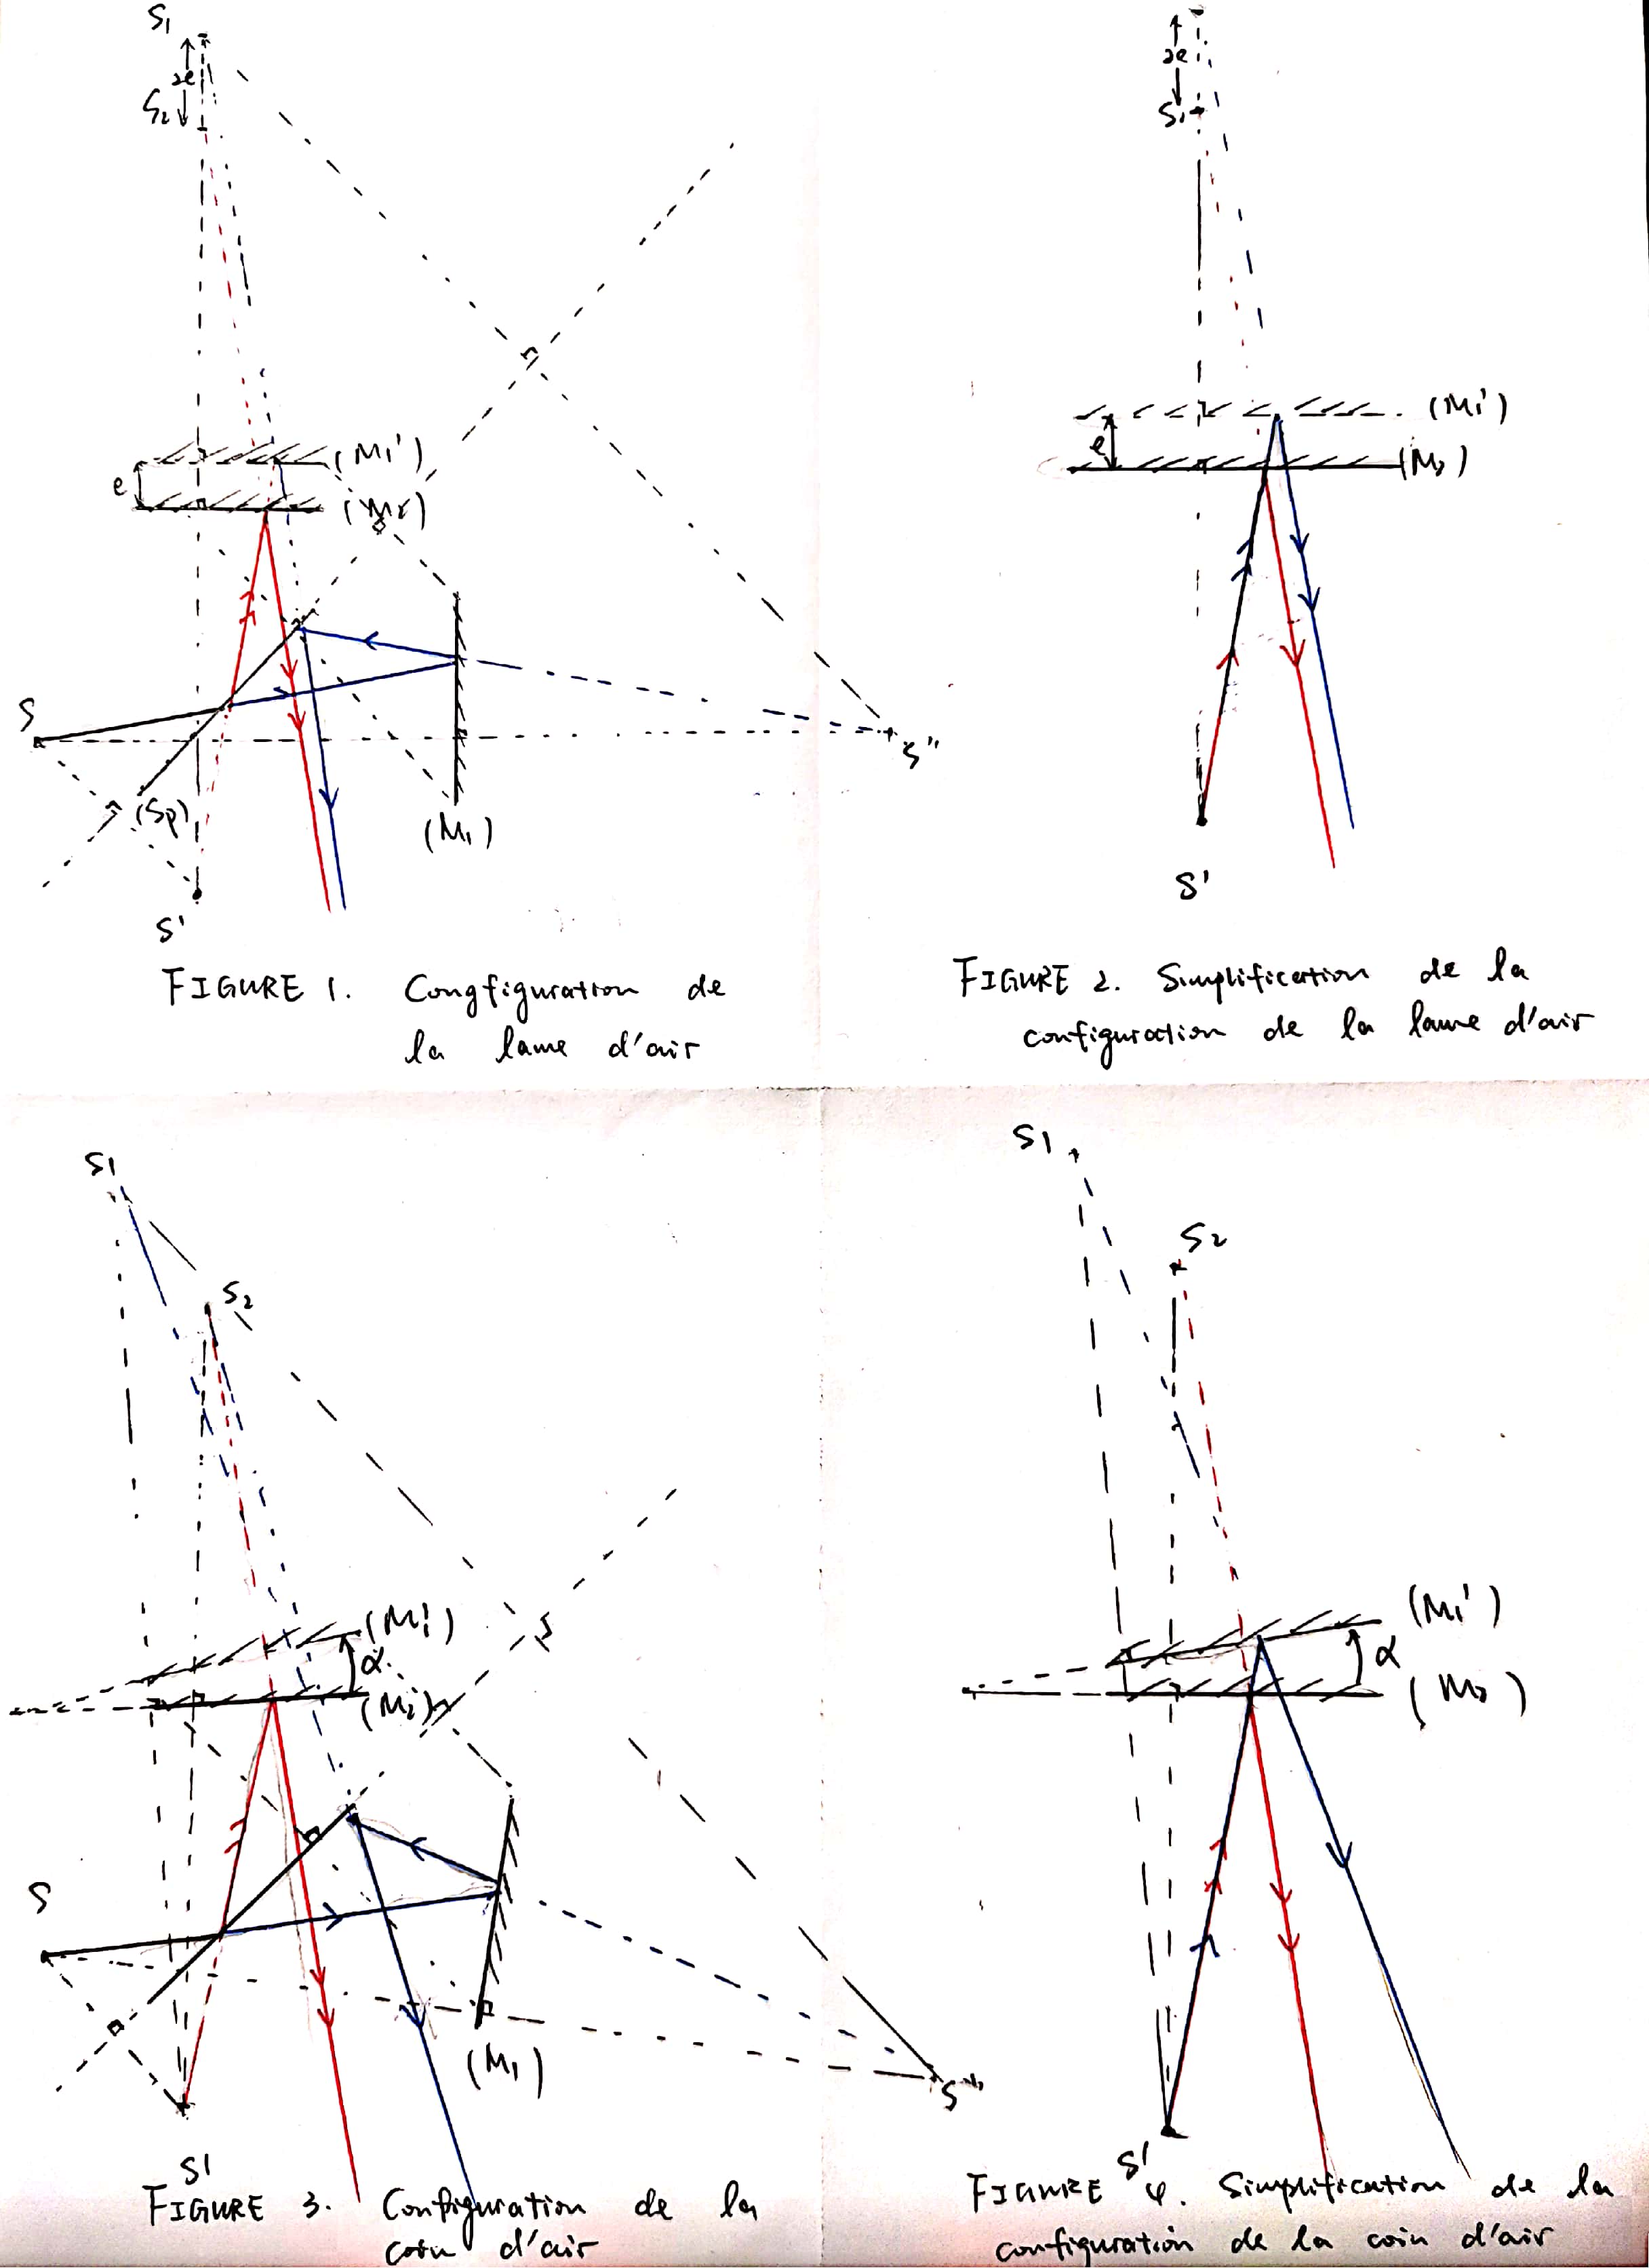 S1
2e
S2
(M1')
e
(M2)
S
S"
(Sp)
(M1)
S'
FIGURE 1. Congfiguration de
la lame d'air
2e
S1
(M1')
e
(M2)
S'
FIGURE 2. Simplification de la
configuration de la lame d'air
S1
S2
(M1')
α
(M2)
S
(M1)
S"
S'
FIGURE 3. Configuration de la
coin d'air
S1
S2
(M1')
α
(M2)
S'
FIGURE 4. Simplification de la
configuration de la coin d'air